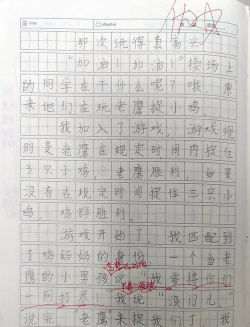 那次玩得真高兴
"加油！加油！"操场上
的同学在干什么呢？哦，原
来他们在玩老鹰捉小鸡。
我加入了游戏，游戏规
则是老鹰在规定时间内捉住
三只小鸡，老鹰胜利，如果
没有在规定时间捉住三只小
鸡，鸡群胜利。
游戏开始了，我匹配到
了鸡妈妈的身份，一个当老
鹰的小男孩说："我要将们
一网打尽！"我说："没门儿。"
说完，老鹰来捉我们了，我